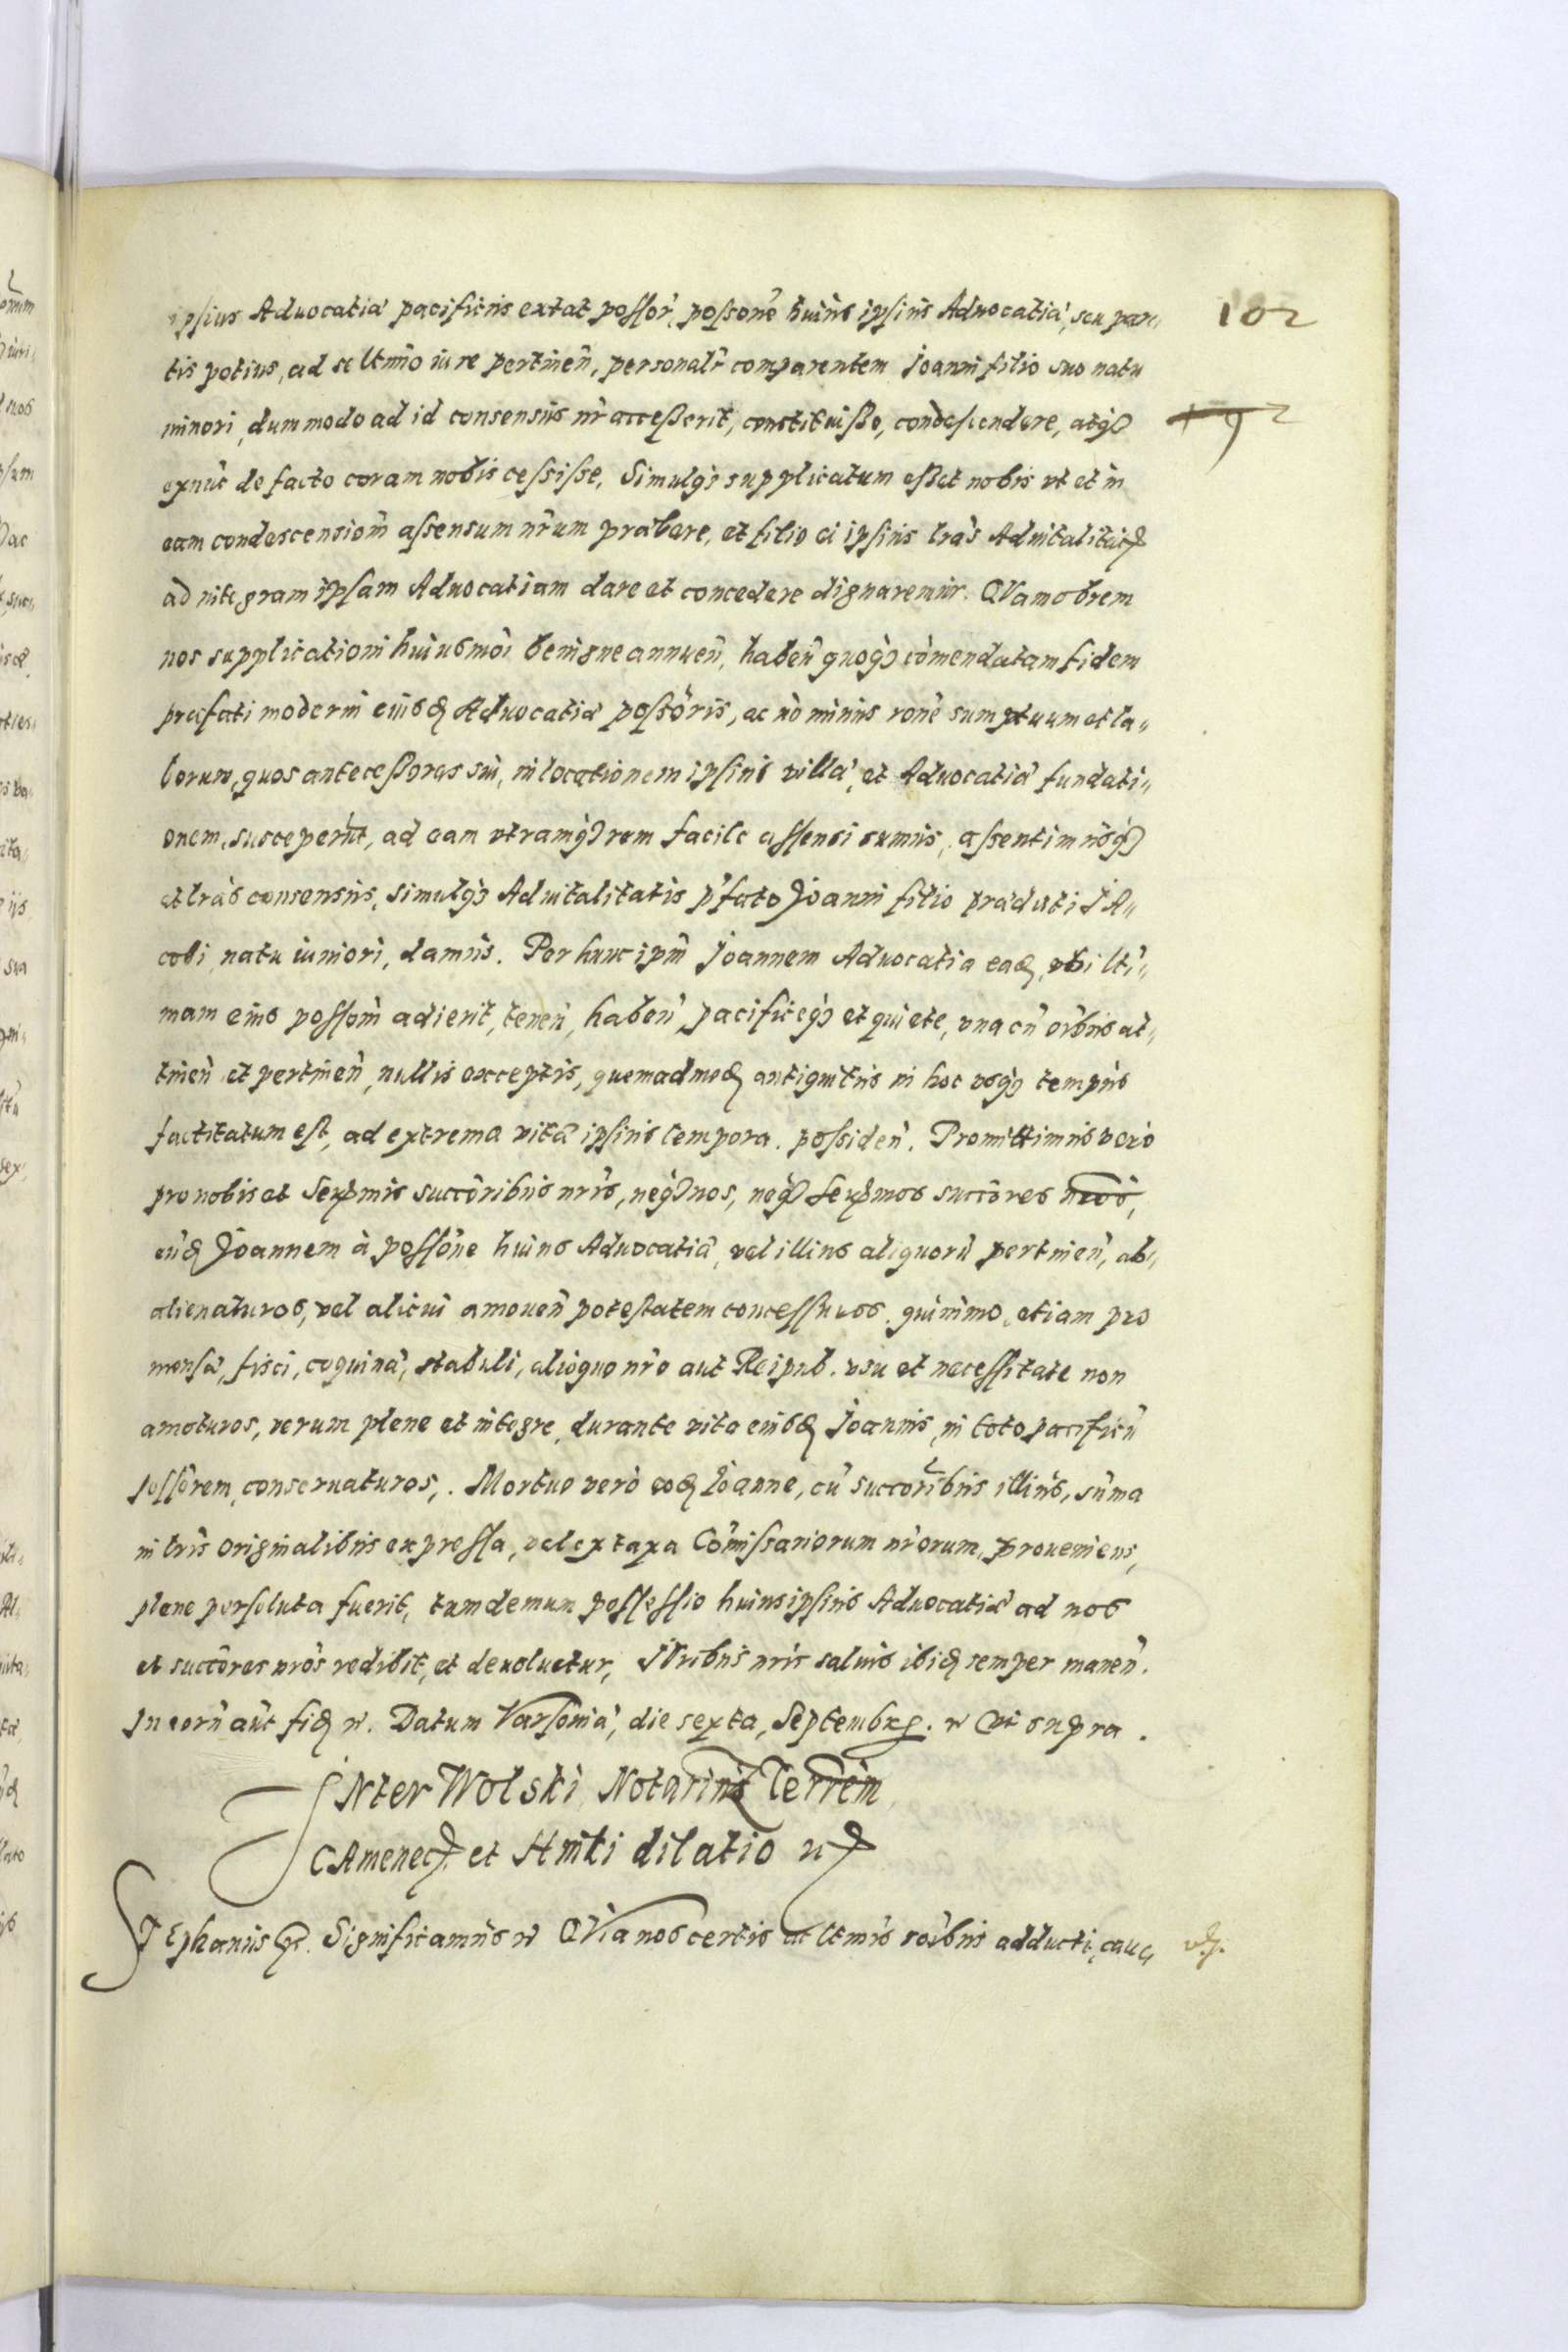 ipsius Aduocatiæ pacificus extat possor̃, possone͂ huius ipsius Aduocatiæ, seu par„
tis potius, ad se ltimo iure pertineñ, personalr̃ comparentem Joanni filio suo natu
minori, dummodo ad id consensus nr̃ accesserit, constituisse, condescendere, atq3
exnũc de facto coram nobis cessisse, Simulq3 supplicatum esset nobis vt et in
eam condescensiom̃ assensum nr̃um præbere, et filio ei ipsius lras Aduitalitatis
ad integram ipsam Aduocatiam dare et concedere dignaremur. QVamobrem
nos supplicationi huiusmoi benigne annueñ, habeñ quoq3 com̃endatam fidem
præfati moderni eiusd Aduocatiæ possoris, ac nõ minus rone͂ sumptuum et la„
borum, quos antecessores sui, in locationem ipsius villæ, et Aduocatiæ fundati„
onem, susceperũt, ad eam vtramq3 rem facile assensi sumus, assentimusq3
et lras consensus, simulq3 Aduitalitatis p̃fato Joanni filio prædicti JA„
cobi, natu iuniori, damus. Per hunc ipm̃ Joannem Aduocatia ead, vbi lti„
mam eius possom̃ adierit, teneñ, habeñ, pacificeq3 et quiete, vna cũ oĩbus at„
tineñ et pertineñ, nullis exceptis, quemadmod antiquitus in hoc vsq3 tempus
factitatum est, ad extrema vitæ ipsius tempora. possideñ. Promittimus vero
pro nobis et Serr̃mis succoribus nr̃is, neq3 nos, neq3 Serr̃mos succores nr̃os,
eũd Joannem à possone͂ huius Aduocatiæ, vel illius aliquorũ pertineñ, ab„
alienaturos, vel alicui amoueñ potestatem concessuros. quinimo, etiam pro
mensæ, fisci, coquinæ, stabuli, alioque nr̃o aut Reipub. vsu et necessitate non
amoturos, verum plene et integre, durante vita eiusd Joannis, in toto pacificũ
possorem, conseruaturos,. Mortuo verò eod Joanne, cũ succoribus illius, sum̃a
in lris originalibus expressa, vel ex taxa Com̃issariorum nr̃orum, proueniens,
plene persoluta fuerit, tumdemum possessio huius ipsius Aduocatiæ ad nos
et succores nr̃os redibit, et deuoluetur, JUribus nr̃is saluis ibid semper maneñ.
In corũ aũt fid rc. Datum Varsouiæ, die sexta, Septembrs. rc Vt supra.
INter Wolski Notarium Terrem
CAmenecs. et Hniki dilatio rcs
STephanus rc. Significamus rc QVia nos certis ac ltimis roĩbus adducti, cau„
102
192